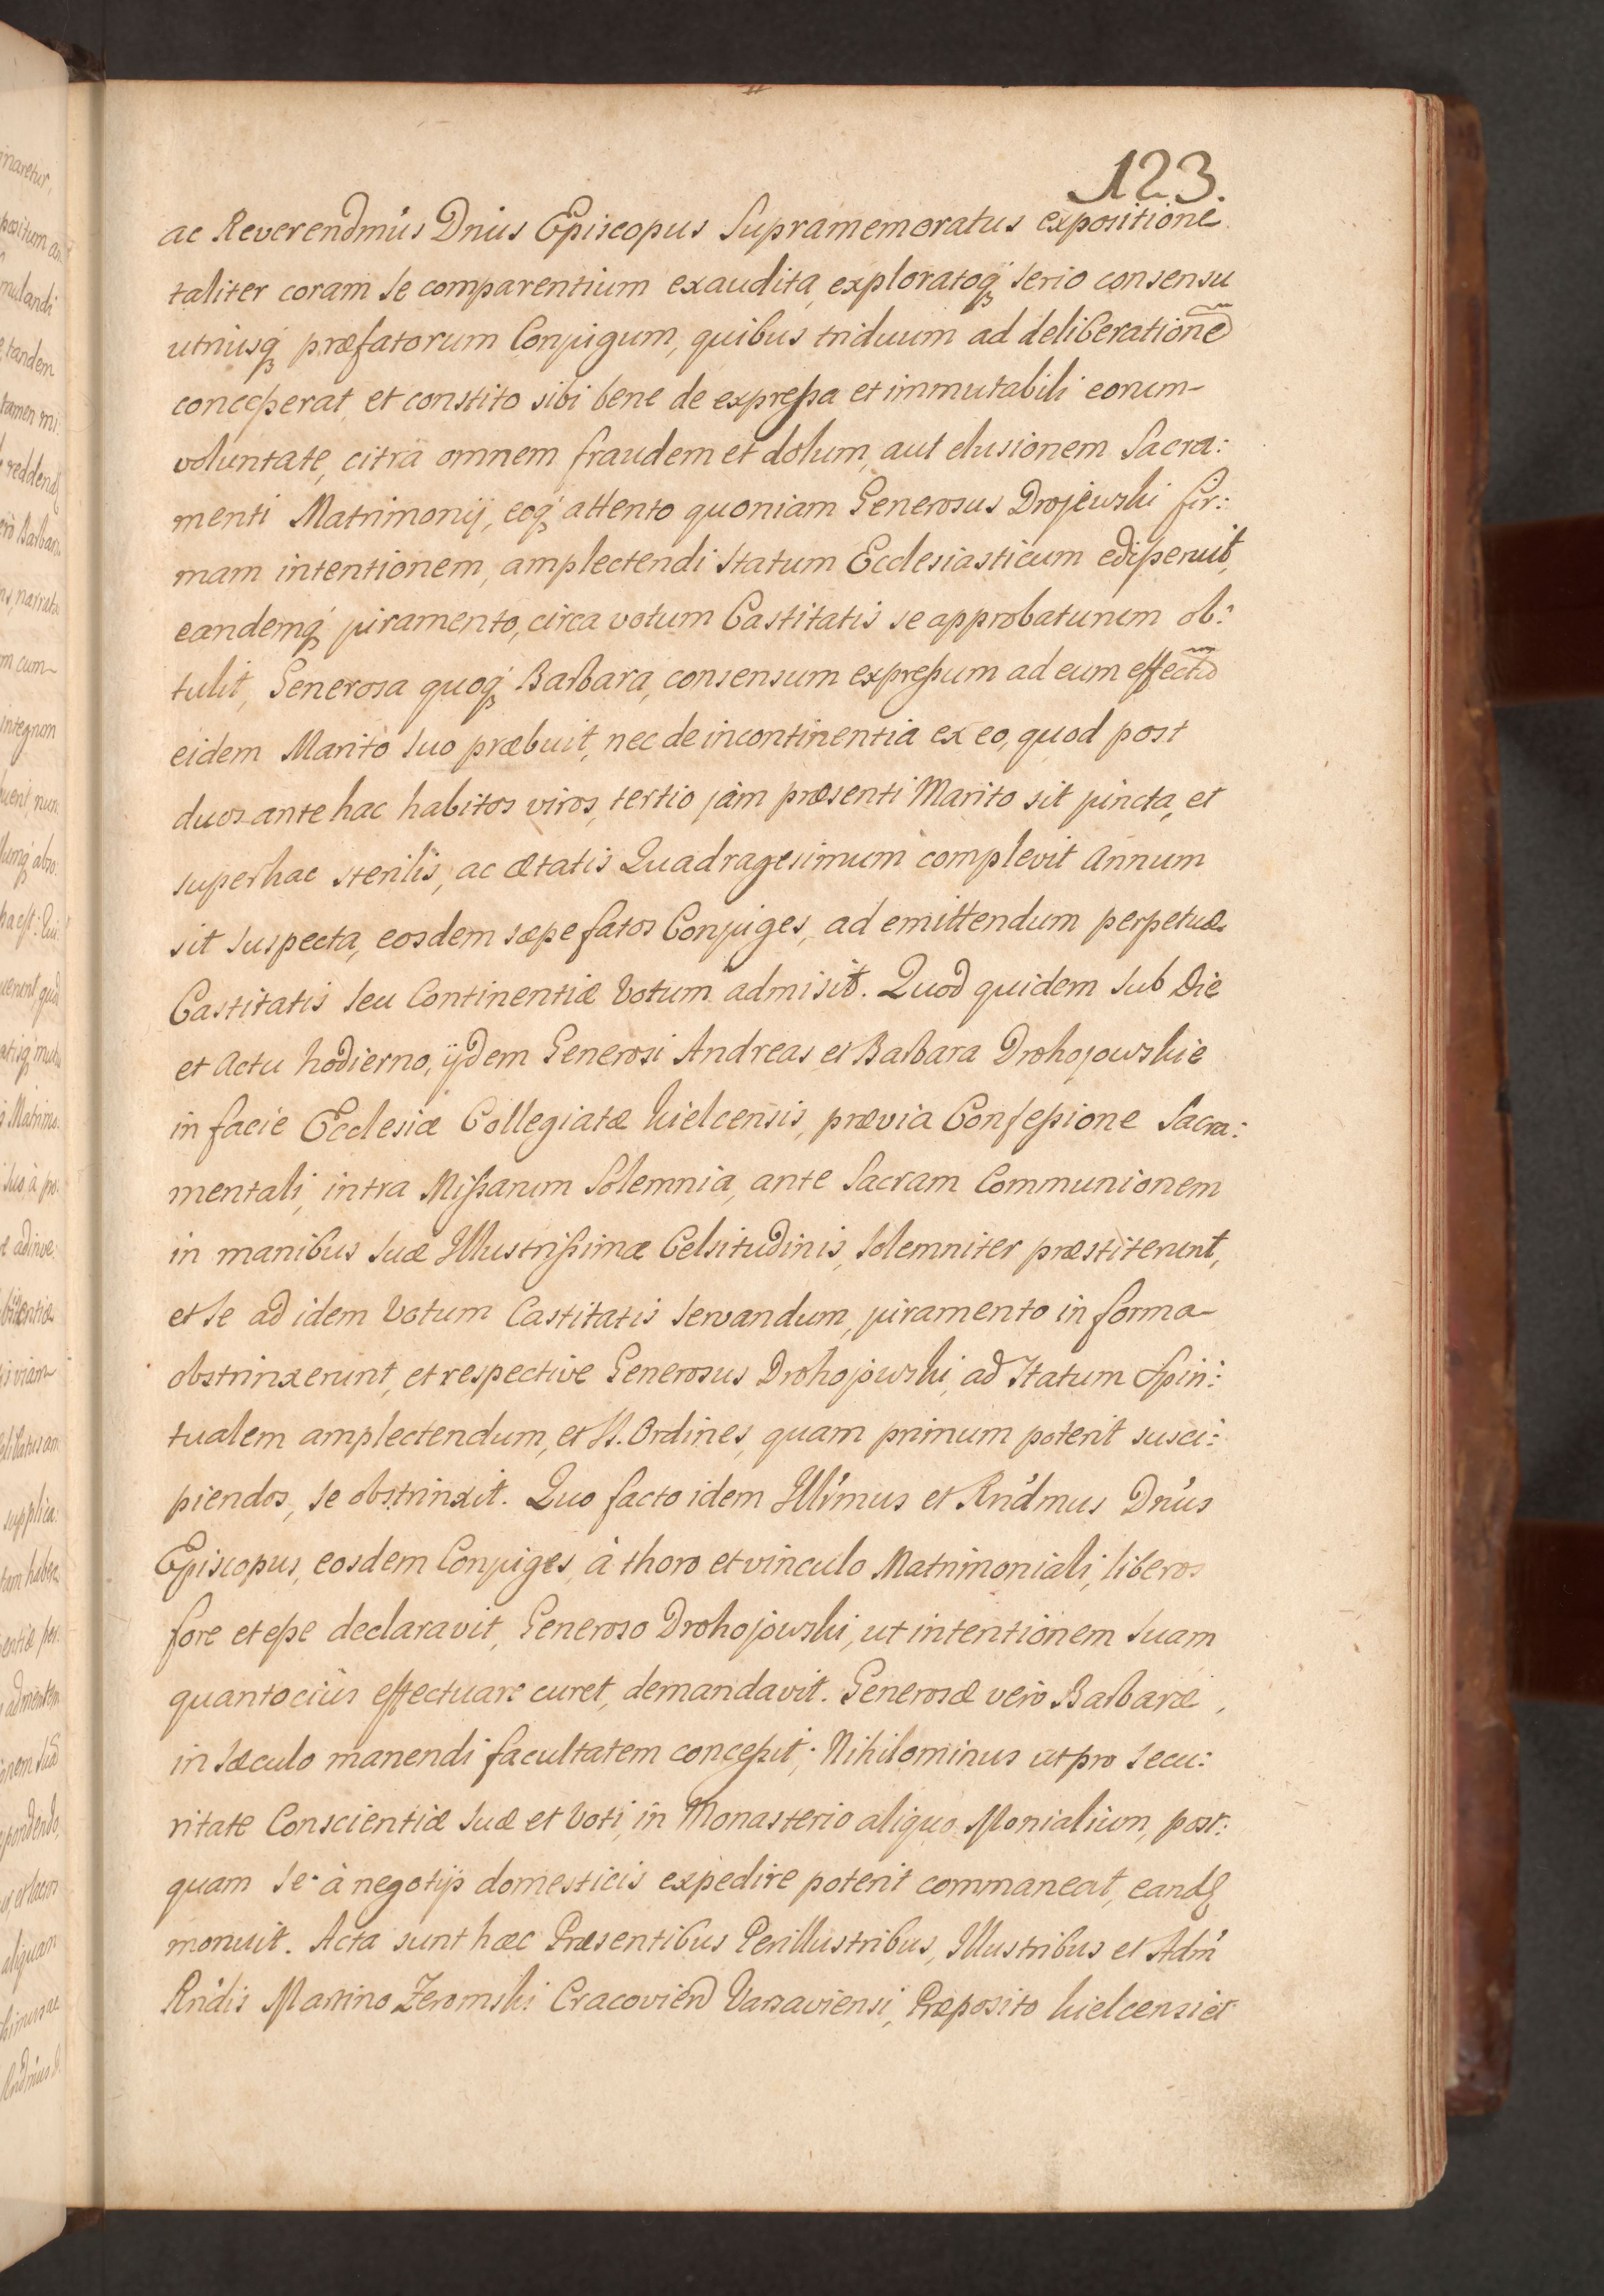 123.
ac Reverendmûs Dnûs Episcopus Supramemoratus expositione
taliter coram se comparentium exaudita, exploratoq́ serio consensu
utriusq́ præfatorum Conjugum, quibus triduum ad deliberationẽ
concesserat, et constito sibi bene de expressa et immutabili eorum-
voluntate, citrà omnem fraudem et dolum, aut elusionem Sacra:
menti Matrimonij, eoq́ attento quoniam Generosus Drojewski fir:
mam intentionem, amplectendi Statum Ecclesiasticum edisseruit,
eandemq́ juramento, circa votum Castitatis se approbaturum ob:
tulit, Generosa quoq́ Barbara, consensum expressum ad eum effectũ
eidem Marito Suo præbuit, nec de incontinentia ex eo, quod post
duos ante hac habitos viros, tertio jàm præsenti Marito sit juncta, et
superhac sterilis, ac ætatis Quadragesimum complevit Annum
sit suspecta, eosdem sæpe fatos Conjuges, ad emittendum perpetuæ
Castitatis seu Continentiæ Votum admisit. Quod quidem sub Die
et Actu hodierno, ijdem Generosi Andreas et Barbara Drohojowskie
in facie Ecclesiæ Collegiatæ Kielcensis, prævia Confessione Sacra:
mentali, intra Missarum Solemnia, ante Sacram Communionem
in manibus Suæ Illustrissimæ Celsitudinis, solemniter præstiterunt,
et se ad idem Votum Castitatis servandum, juramento in forma-
obstrinxerunt, et respective Generosus Drohojowski, ad Statum Spiri:
tualem amplectendum, et S. Ordines, quam primum poterit susci:
piendos, se obstrinxit. Quo facto idem Illr̃mus et Rnd́mus Dnús
Episcopus, eosdem Conjuges, à thoro et vinculo Matrimoniali, liberos
fore et esse declaravit, Generoso Drohojowski, ut intentionem suam
quantociùs effectuare curet, demandavit. Generosæ verò Barbaræ,
in Sæculo manendi facultatem concessit; Nihilominus ut pro secu:
ritate Conscientiæ Suæ et Voti, in Monasterio aliquo Monialium, post:
quam se à negotijs domesticis expedire poterit commaneat, eandẽ
monuit. Acta sunt hæc Præsentibus Perillustribus, Illustribus et Adm̃
Rnd́is Martino Żeromski Cracovieñ Varsaviensi, Præposito Kielcensi et